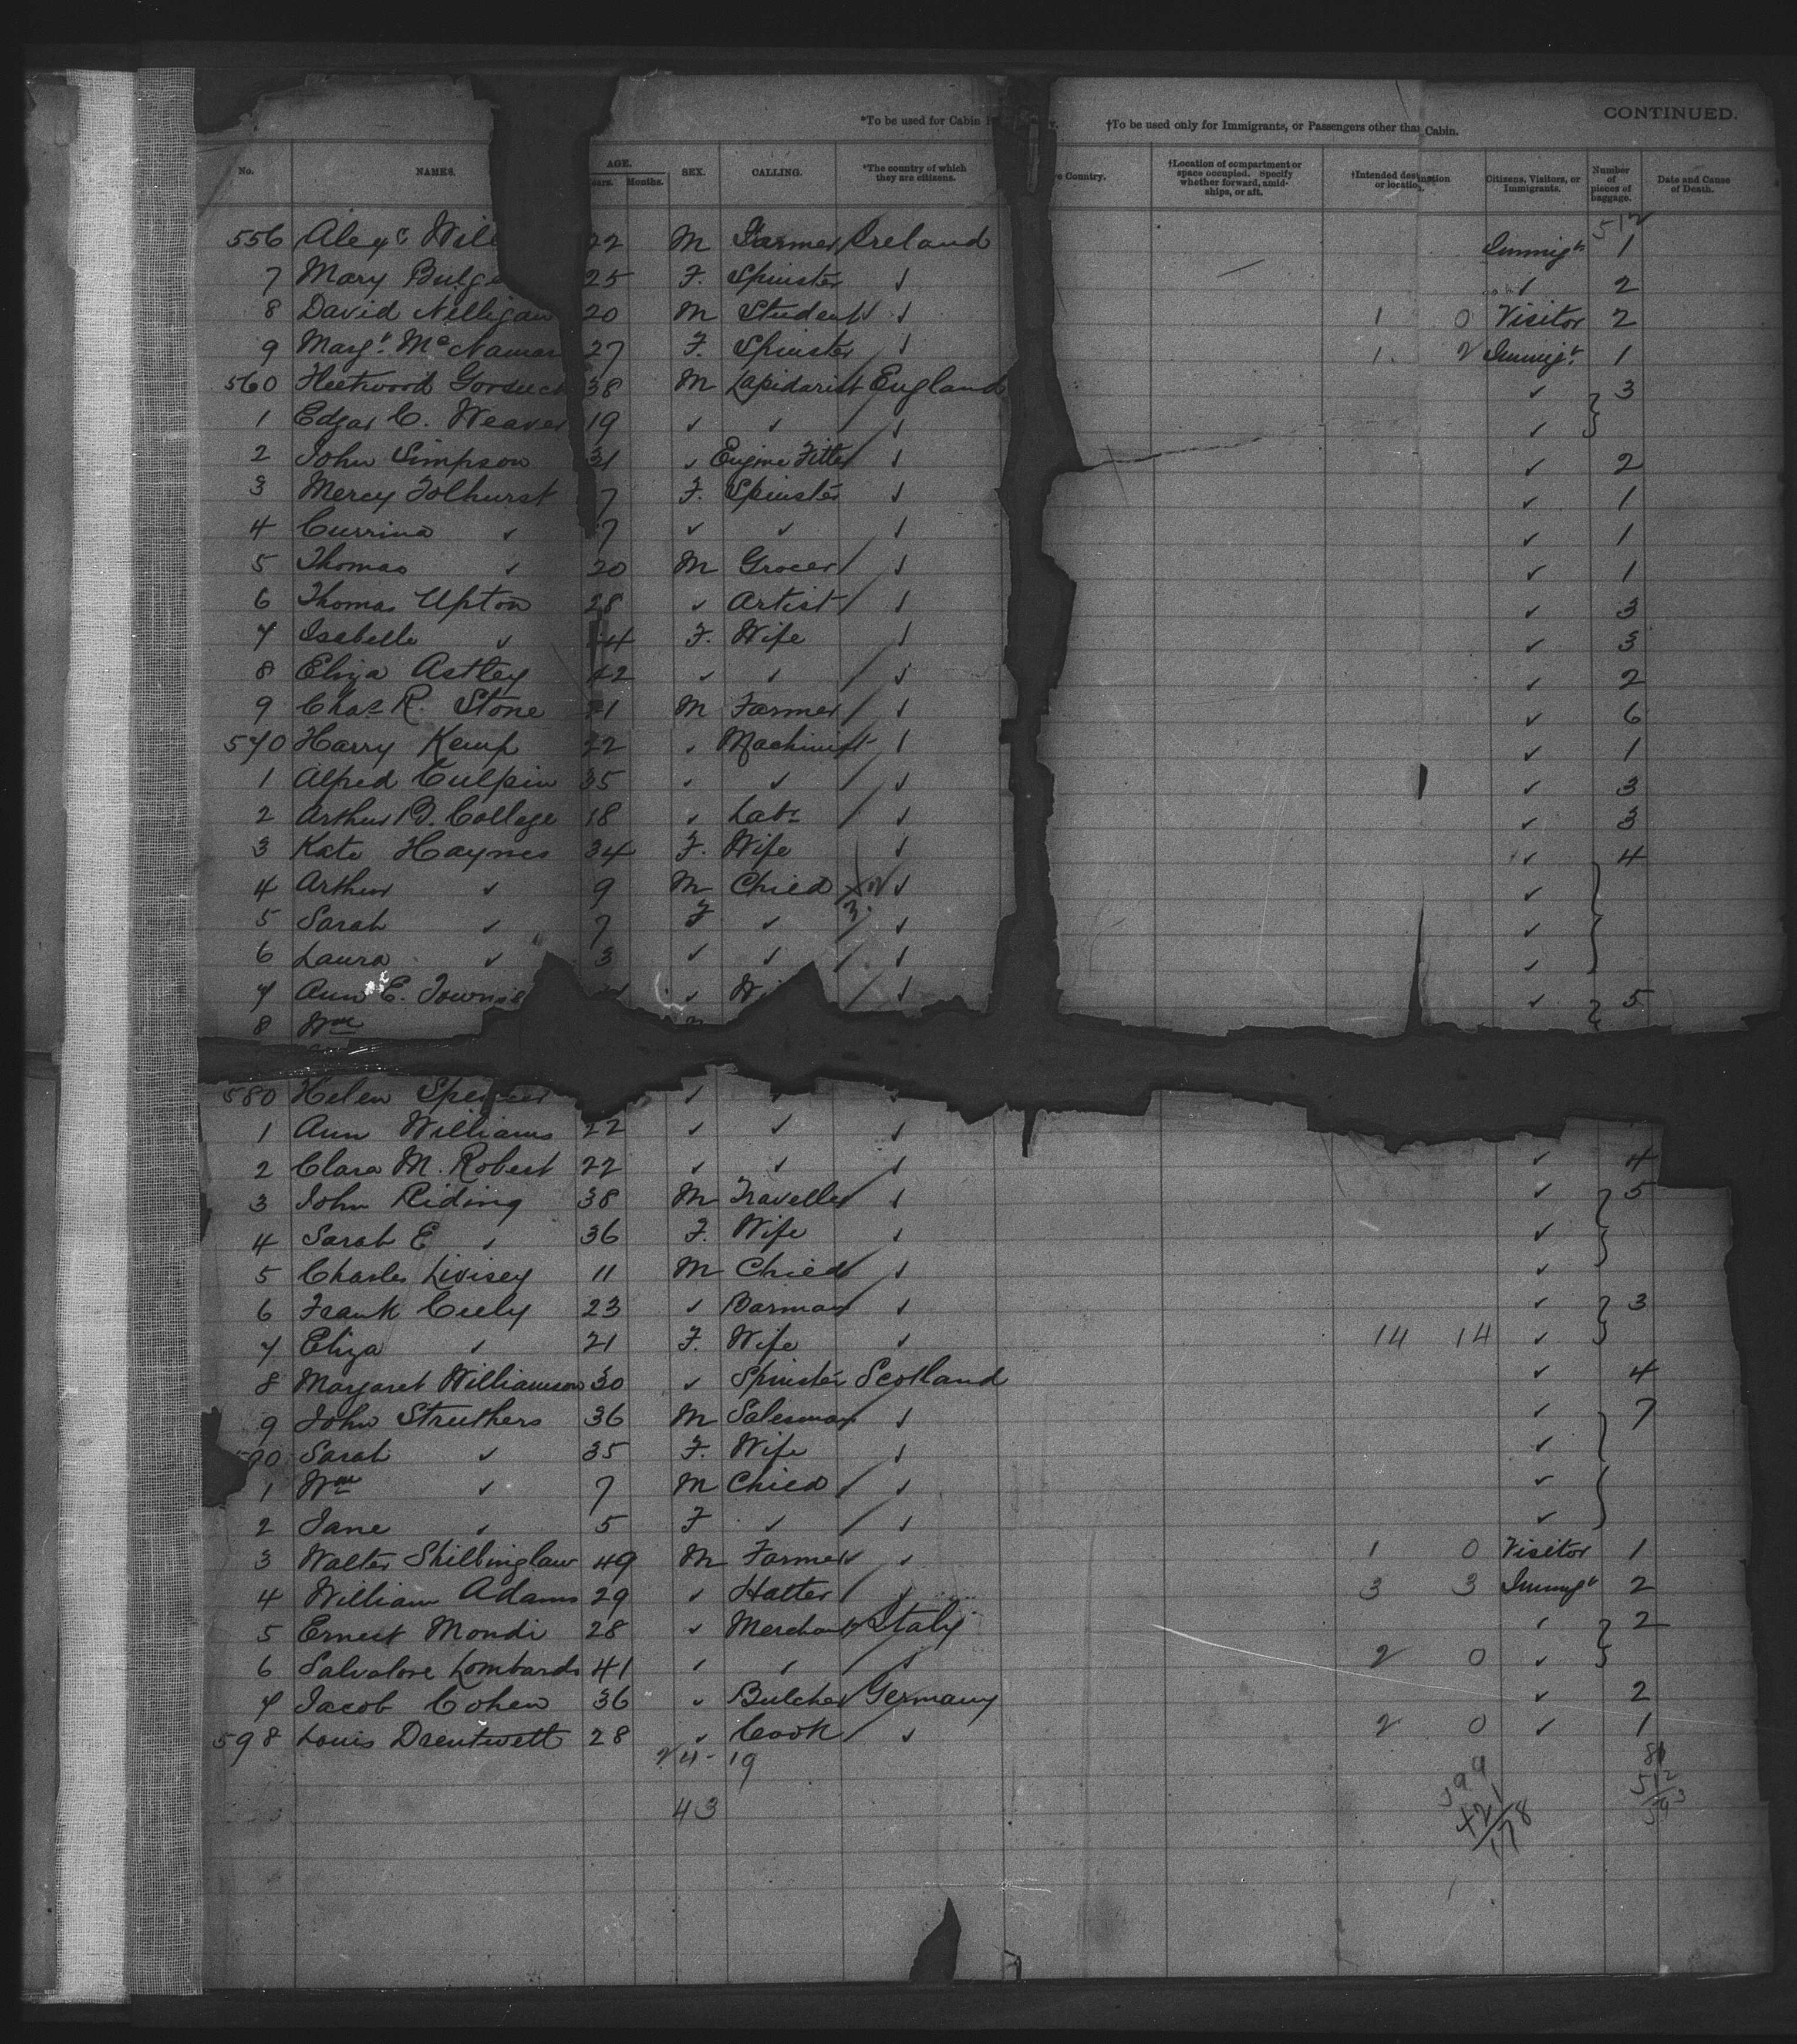 CONTINUED.
*To be used for Cabin †To be used only for Immigrants, or Passengers other than Cabin.
No. NAMES. AGE. Years. Months. SEX. CALLING. *The country of which they are citizens. Country. †Location of compartment or space occupied. Specify whether forward, amidships, or aft. †Intended destination or location. Citizens, Visitors, or Immigrants. Number of pieces of baggage. Date and Cause of Death.
512
556 Alexr Will 22 M Farmer Ireland Immigt 1
7 Mary Bulge 25 F. Spinster ✓ ✓ 2
8 David Nelligan 20 M Student ✓ 1 0 Visitor 2
9 Margt. McNamar 27 F. Spinster ✓ 1 2 Immigt. 1
560 Fleetwood 38 M Lapidarist England ✓ 3
1 Edgar C. Weaver 19 ✓ ✓ ✓ ✓
2 John Simpson 31 ✓ Engine Fitter ✓ ✓ 2
3 Mercy Tolhurst 7 F. Spinster ✓ ✓ 1
4 Currina ✓ 7 ✓ ✓ ✓ ✓ 1
5 Thomas ✓ 20 M Grocer ✓ ✓ 1
6 Thomas Upton 28 ✓ Artist ✓ ✓ 3
7 Isabelle ✓ 4 F. Wife ✓ ✓ 3
8 Eliza Astley 42 ✓ ✓ ✓ ✓ 2
9 Chas R. Stone 1 M Farmer ✓ ✓ 6
570 Harry Kemp 22 ✓ Machinist ✓ ✓ 1
1 Alfred Culpin 35 ✓ ✓ ✓ ✓ 3
2 Arthur B. College 18 ✓ Labr ✓ ✓ 3
3 Kate Haynes 34 F. Wife ✓ ✓ 4
4 Arthur ✓ 9 M Child ✓ ✓
5 Sarah ✓ 7 F ✓ ✓ ✓
6 Laura ✓ 3 ✓ ✓ ✓ ✓
7 Ann E. Towns ✓ Wi ✓ ✓ 5
8 Wm
580 Helen Spencer ✓ ✓ ✓
1 Ann Williams 22 ✓ ✓ ✓
2 Clara M. Robert 22 ✓ ✓ ✓ ✓ 4
3 John Riding 38 M Traveller ✓ ✓ 5
4 Sarah E ✓ 36 F. Wife ✓ ✓
5 Charles Livisey 11 M Child ✓ ✓
6 Frank Ceely 23 ✓ Barman ✓ ✓ 3
7 Eliza ✓ 21 F. Wife ✓ 14 14 ✓
8 Margaret Williamson 30 ✓ Spinster Scotland ✓ 4
9 John Struthers 36 M Salesman ✓ ✓ 7
590 Sarah ✓ 35 F. Wife ✓ ✓
1 Wm ✓ 7 M Child ✓ ✓
2 Jane ✓ 5 F ✓ ✓ ✓
3 Walter Shillinglaw 49 M Farmer ✓ 1 0 Visitor 1
4 William Adams 29 ✓ Hatter ✓ 3 3 Immigt 2
5 Ernest Mondi 28 ✓ Merchant Italy ✓ 2
6 Salvatore Lombardo 41 ✓ ✓ ✓ 2 0 ✓
7 Jacob Cohen 36 ✓ Butcher Germany ✓ 2
598 Louis Drentwett 28 ✓ Cook ✓ 2 0 ✓ 1
24 - 19
43
81
512
593